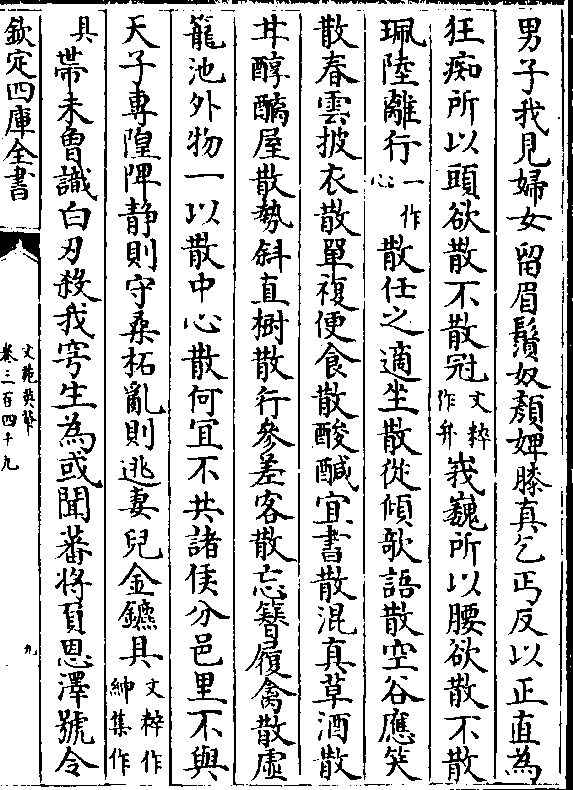 男子我見婦女留眉鬚奴顏婢膝真乞丐反以正直為
狂痴所以頭欲散不散冠文粹作弁峩巍所以腰欲散不散
珮陸離行一作心散任之適坐散從傾欹語散空谷應笑
散春雲披衣散單複便食散酸醎宜書散混真草酒散
甘醇醨屋散勢斜直樹散行參差客散忘簪履禽散虛
籠池外物一以散中心散何宜不共諸侯分邑里不與
天子專隍陴靜則守桑柘亂則逃妻兒金鑣具文粹作紳集作
具帶未曾識白刃殺我穹生為或聞蕃將負恩澤號令
欽定四庫全書
文苑英華
卷三百四十九
九